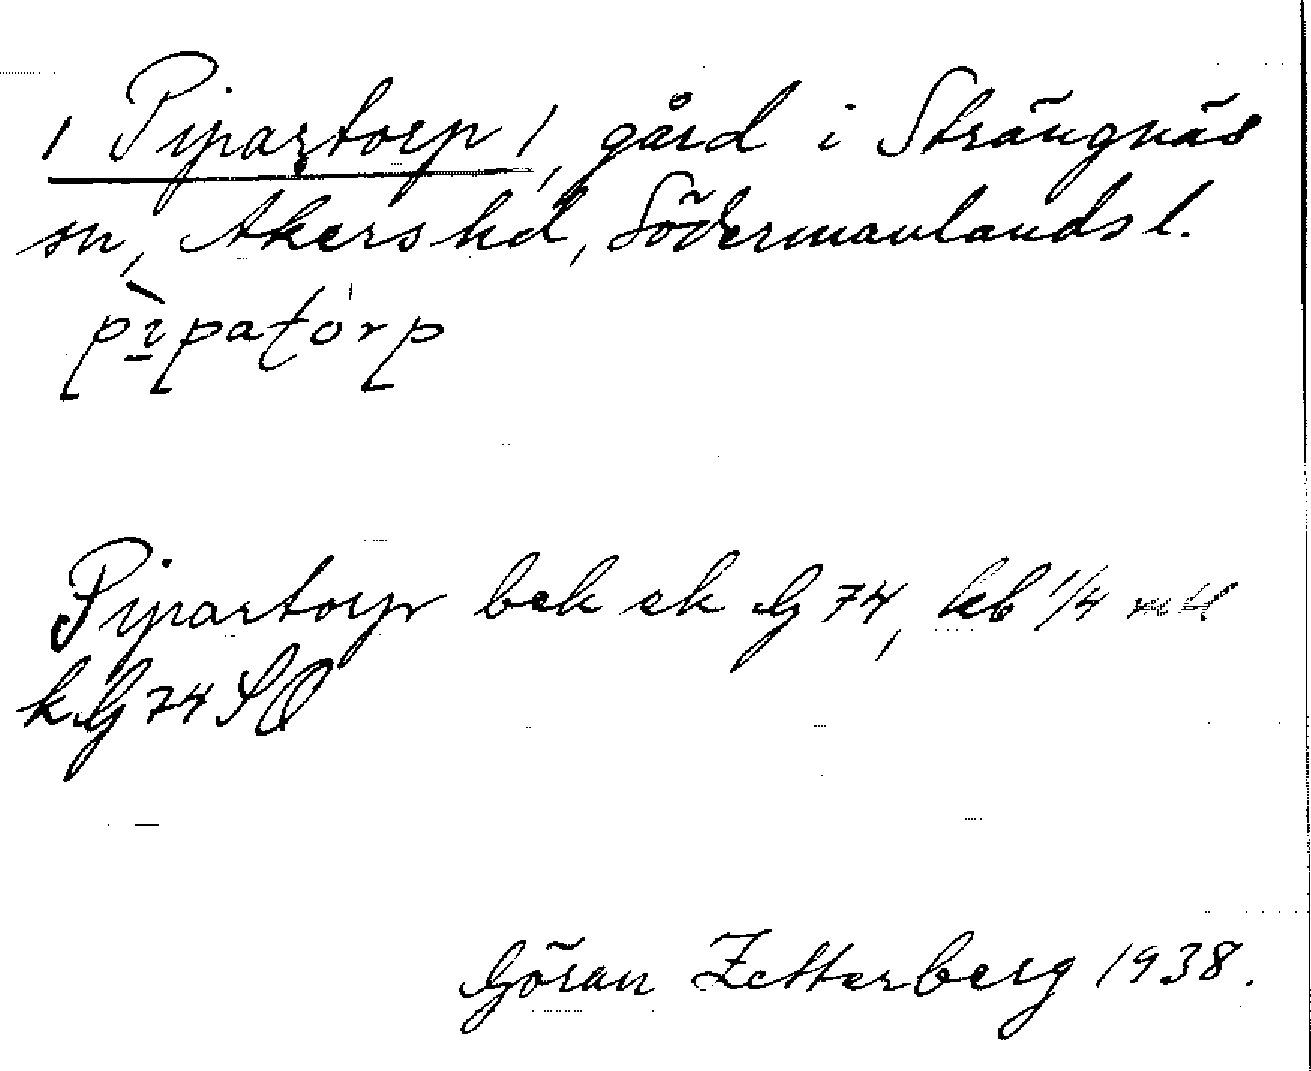 / Pipartorp /, gård i Strängnäs
sn, Åkers hd, Södermanlands l.
pìpatorp
Pipartorp bek ek G 74, kb 1/4 mtl
k. G 74 SO
Göran Zetterberg 1938.